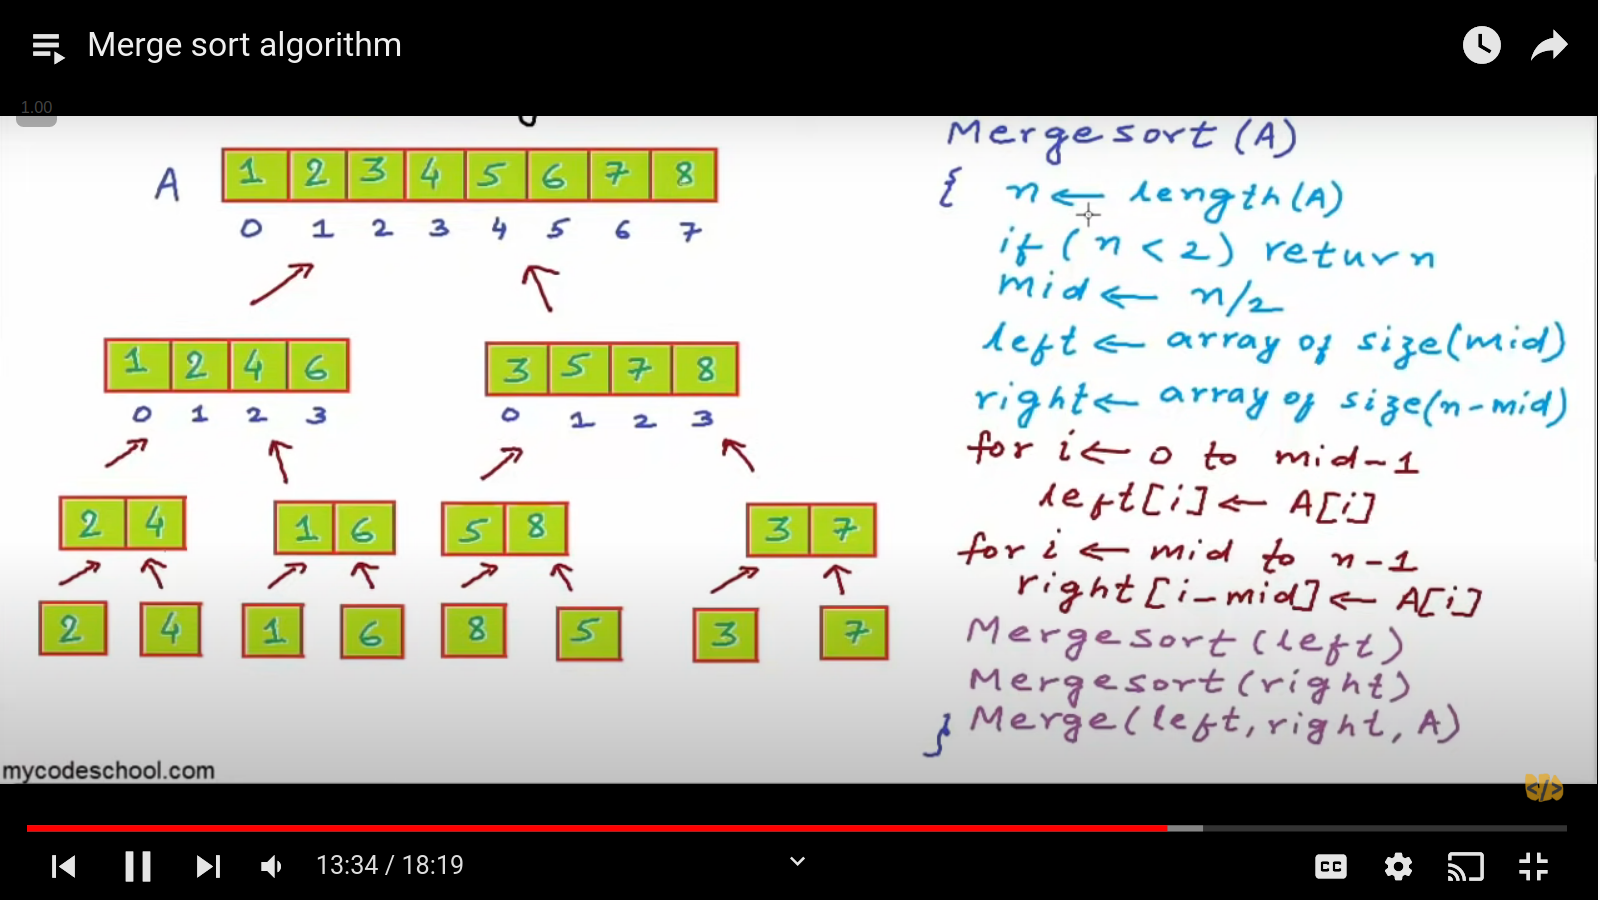 Merge sort algorithm
1.00
A 1 2 3 4 5 6 7 8
0 1 2 3 4 5 6 7
1 2 4 6
0 1 2 3
3 5 7 8
0 1 2 3
2 4
1 6
5 8
3 7
2 4 1 6 8 5 3 7
Mergesort (A)
{ n ← length(A)
if ( n < 2 ) return
mid ← n/2
left ← array of size(mid)
right ← array of size(n-mid)
for i ← 0 to mid-1
left[i] ← A[i]
for i ← mid to n-1
right[i-mid] ← A[i]
Mergesort(left)
Mergesort(right)
} Merge(left, right, A)
mycodeschool.com
</>
13:34 / 18:19
CC